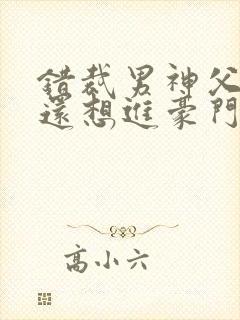 錯裁男神父
還想進豪門
高小六